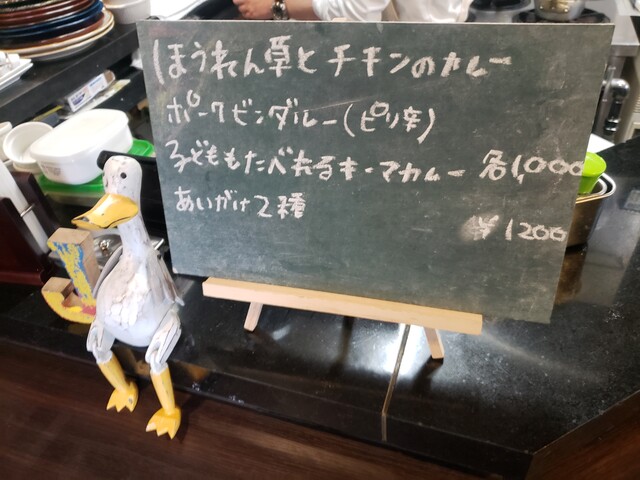 ほうれん草とチキンのカレー
ポークビンダルー(ピリ辛)
子どももたべれるキーマカレー 各1,000
あいがけ2種
¥1200